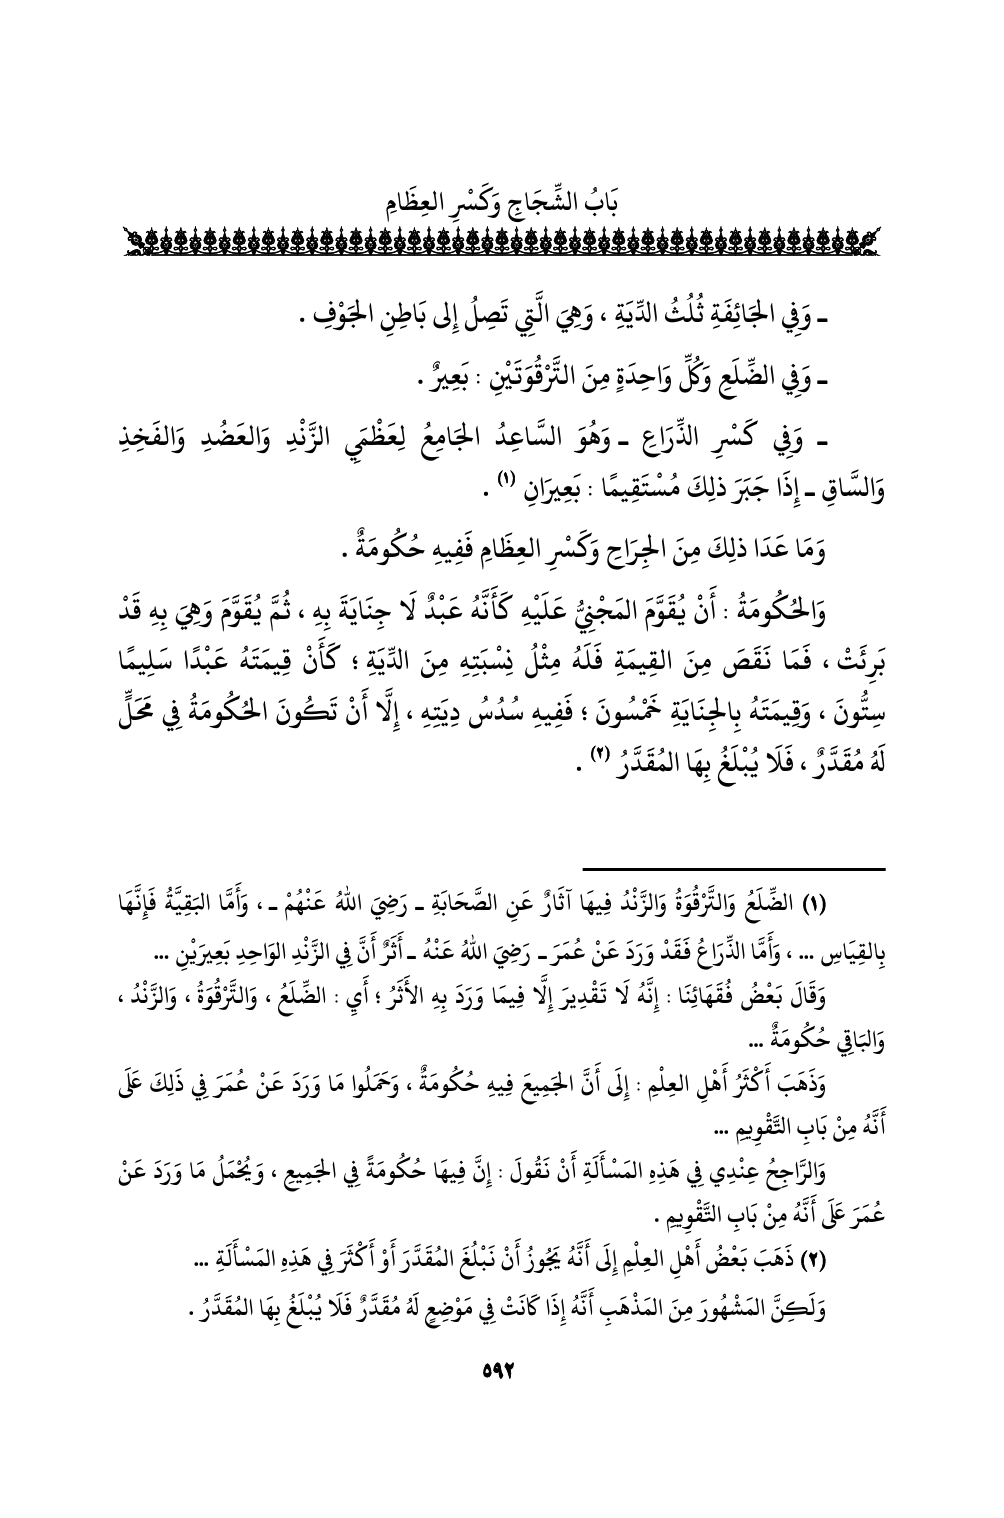 بَابُ الشِّجَاجِ وَكَسْرِ العِظَامِ
ـ وَفِي الجَائِفَةِ ثُلُثُ الدِّيَةِ ، وَهِيَ الَّتِي تَصِلُ إِلى بَاطِنِ الجَوْفِ .
ـ وَفِي الضِّلَعِ وَكُلِّ وَاحِدَةٍ مِنَ التَّرْقُوَتَيْنِ : بَعِيرٌ .
ـ وَفِي كَسْرِ الذِّرَاعِ ـ وَهُوَ السَّاعِدُ الجَامِعُ لِعَظْمَيِ الزَّنْدِ وَالعَضُدِ وَالفَخِذِ
وَالسَّاقِ ـ إِذَا جَبَرَ ذلِكَ مُسْتَقِيمًا : بَعِيرَانِ (١) .
وَمَا عَدَا ذلِكَ مِنَ الجِرَاحِ وَكَسْرِ العِظَامِ فَفِيهِ حُكُومَةٌ .
وَالحُكُومَةُ : أَنْ يُقَوَّمَ المَجْنِيُّ عَلَيْهِ كَأَنَّهُ عَبْدٌ لَا جِنَايَةَ بِهِ ، ثُمَّ يُقَوَّمَ وَهِيَ بِهِ قَدْ
بَرِئَتْ ، فَمَا نَقَصَ مِنَ القِيمَةِ فَلَهُ مِثْلُ نِسْبَتِهِ مِنَ الدِّيَةِ ؛ كَأَنْ قِيمَتَهُ عَبْدًا سَلِيمًا
سِتُّونَ ، وَقِيمَتَهُ بِالجِنَايَةِ خَمْسُونَ ؛ فَفِيهِ سُدُسُ دِيَتِهِ ، إِلَّا أَنْ تَكُونَ الحُكُومَةُ فِي مَحَلٍّ
لَهُ مُقَدَّرٌ ، فَلَا يُبْلَغُ بِهَا المُقَدَّرُ (٢) .
(١) الضِّلَعُ وَالتَّرْقُوَةُ وَالزَّنْدُ فِيهَا آثَارٌ عَنِ الصَّحَابَةِ ـ رَضِيَ اللهُ عَنْهُمْ ـ ، وَأَمَّا البَقِيَّةُ فَإِنَّهَا
بِالقِيَاسِ ... ، وَأَمَّا الذِّرَاعُ فَقَدْ وَرَدَ عَنْ عُمَرَ ـ رَضِيَ اللهُ عَنْهُ ـ أَثَرٌ أَنَّ فِي الزَّنْدِ الوَاحِدِ بَعِيرَيْنِ ...
وَقَالَ بَعْضُ فُقَهَائِنَا : إِنَّهُ لَا تَقْدِيرَ إِلَّا فِيمَا وَرَدَ بِهِ الأَثَرُ ؛ أَيِ : الضِّلَعُ ، وَالتَّرْقُوَةُ ، وَالزَّنْدُ ،
وَالبَاقِي حُكُومَةٌ ...
وَذَهَبَ أَكْثَرُ أَهْلِ العِلْمِ : إِلَى أَنَّ الجَمِيعَ فِيهِ حُكُومَةٌ ، وَحَمَلُوا مَا وَرَدَ عَنْ عُمَرَ فِي ذَلِكَ عَلَى
أَنَّهُ مِنْ بَابِ التَّقْوِيمِ ...
وَالرَّاجِحُ عِنْدِي فِي هَذِهِ المَسْأَلَةِ أَنْ نَقُولَ : إِنَّ فِيهَا حُكُومَةً فِي الجَمِيعِ ، وَيُحْمَلُ مَا وَرَدَ عَنْ
عُمَرَ عَلَى أَنَّهُ مِنْ بَابِ التَّقْوِيمِ .
(٢) ذَهَبَ بَعْضُ أَهْلِ العِلْمِ إِلَى أَنَّهُ يَجُوزُ أَنْ نَبْلُغَ المُقَدَّرَ أَوْ أَكْثَرَ فِي هَذِهِ المَسْأَلَةِ ...
وَلَكِنَّ المَشْهُورَ مِنَ المَذْهَبِ أَنَّهُ إِذَا كَانَتْ فِي مَوْضِعٍ لَهُ مُقَدَّرٌ فَلَا يُبْلَغُ بِهَا المُقَدَّرُ .
٥٩٢